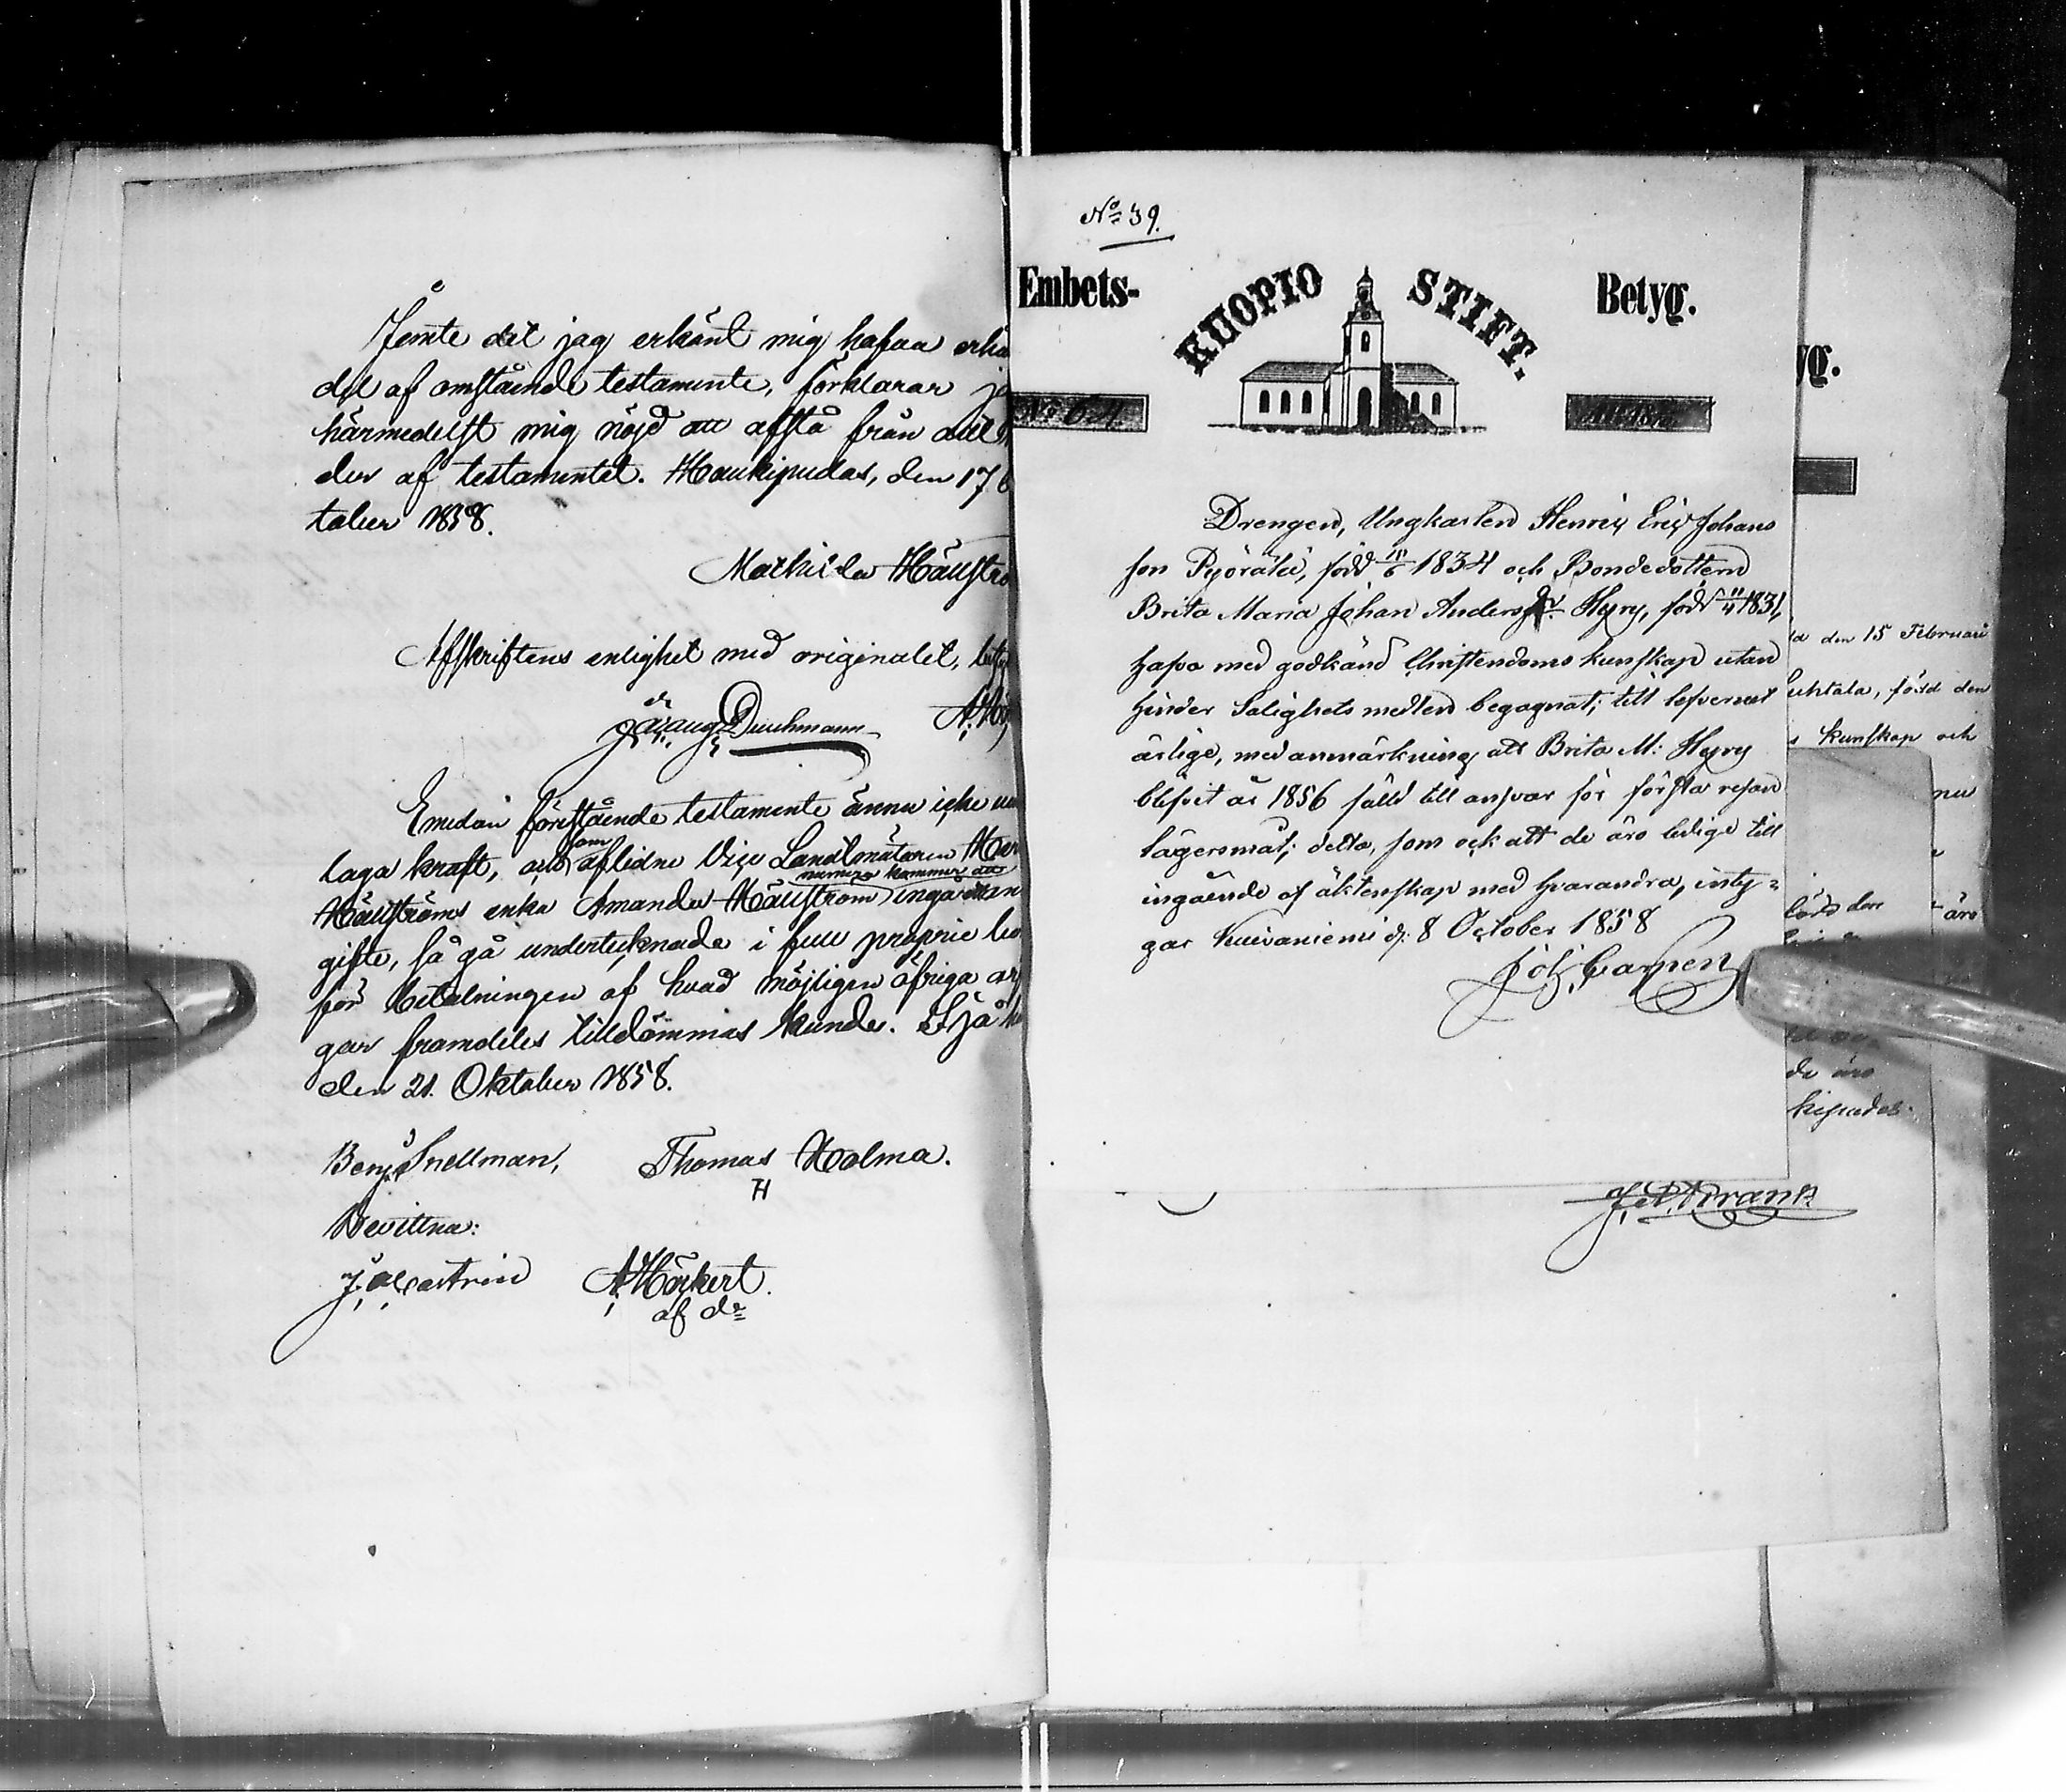 Jemte det jag erkänt mig hafva erhå
del af omstående testamente, förklarar je
härmedelst mig nöjd att afstå från allt
der af testamentet. Haukipudas, den 17 O
tober 1858.
Mathilda Häggströ
Afskriftens enlighet med originalet, bety
Emedan förestående testamente ännu icke un
laga kraft, och som aflidne Vice Landtmätaren Her
Häggströms enka Amanda Häggström numera kommer att ingå
gifte, så gå undertecknade i full proprie bo
för betalningen af hvad möjligen öfriga arf
gar framdeles tilldömmas kunde.
den 21. Oktober 1858.
Benj. Snellman, Thomas Holma.
H
Bevittna:
J. Castrén A. Hörkert.
af dr
No 39.
Embets- KUOPIO STIFT. Betyg.
No 64.
Drengen, Ungkarlen Henric Eric Johans
son Pyörälä, född 1834 och Bondedottern
Brita Maria Johan Anders dr. Hyry, född 11/4 1831,
hafva med godkänd Christendoms kunskap utan
hinder Salighets medlen begagnat; till lefvernet
ärlige, med anmärkning att Brita M: Hyry
blifvit år 1856 fälld till ansvar för första resan
lägersmål; detta, som ock att de äro ledige till
ingående af äktenskap med hvarandra, inty-
gar Kuivaniemi d: 8 October 1858
Joh. Carpén
yg.
den 15 Februari
uhtala, född den
kunskap och
nu
lärs den
äro
de äro
kipudas.
J. A. Frantz